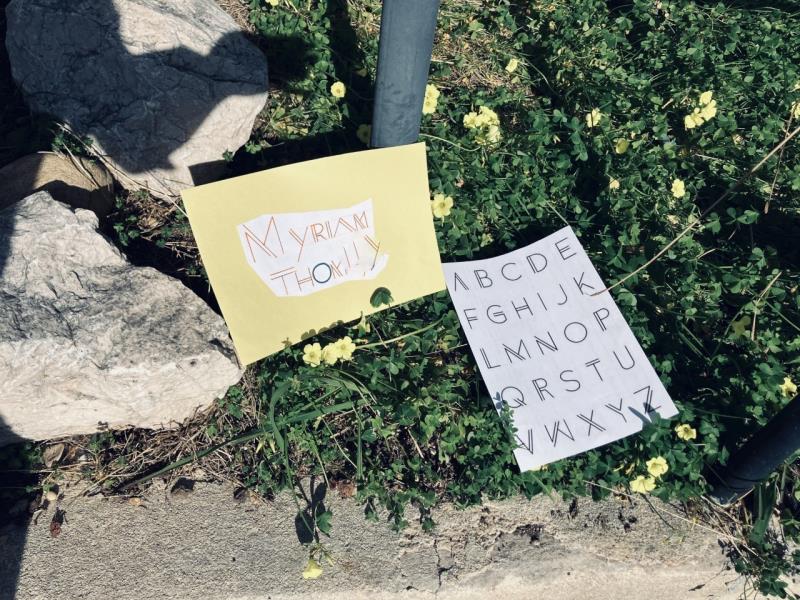 MYRIAM
ABCDE
FGHIJK
LMNOP
QRSTU
VWXYZ